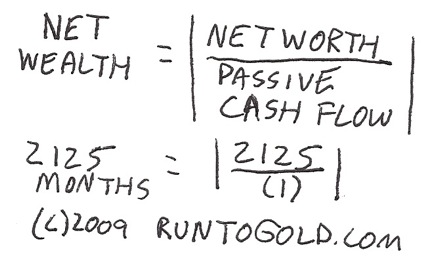 NET WEALTH = | NET WORTH / PASSIVE CASH FLOW |
2125 MONTHS = | 2125 / (1) |
(c)2009 RUNTOGOLD.COM